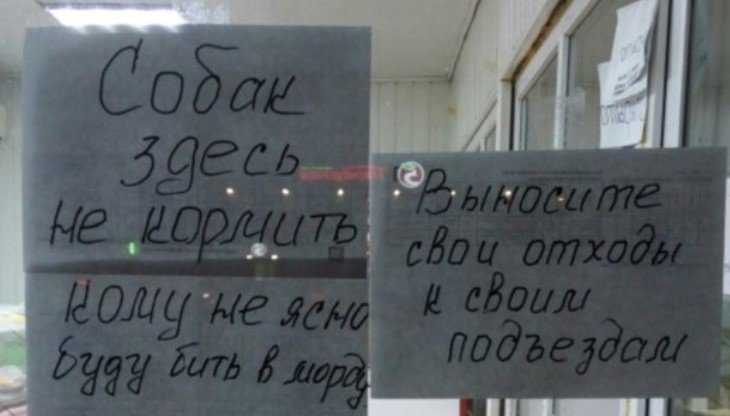 Собак
здесь
не кормить
кому не ясно
буду бить в морду
Выносите
свои отходы
к своим
подъездам